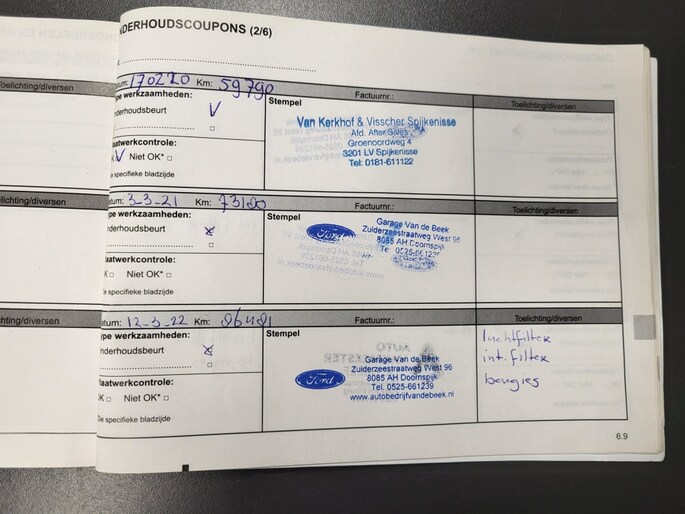 NDERHOUDSCOUPONS (2/6)
Toelichting/diversen
tum: 170220 Km: 59790
Factuurnr.:
Toelichting/diversen
ype werkzaamheden:
nderhoudsbeurt V
Stempel
Van Kerkhof & Visscher Spijkenisse
Afd. After Sales
Groenoordweg 4
3201 LV Spijkenisse
Tel: 0181-611122
laatwerkcontrole:
K V Niet OK*
e specifieke bladzijde
Toelichting/diversen
atum: 3-3-21 Km: 73180
Factuurnr.:
Toelichting/diversen
ype werkzaamheden:
nderhoudsbeurt x
Stempel
Ford
Garage Van de Beek
Zuiderzeestraatweg West 96
8085 AH Doornspijk
Te 0525-661239
laatwerkcontrole:
K Niet OK*
e specifieke bladzijde
hting/diversen
atum: 12-3-22 Km: 86481
Factuurnr.:
Toelichting/diversen
ype werkzaamheden:
nderhoudsbeurt x
Stempel
Ford
Garage Van de Beek
Zuiderzeestraatweg West 96
8085 AH Doornspijk
Tel. 0525-661239
www.autobedrijfvandebeek.nl
luchtfilter
int. filter
bougies
laatwerkcontrole:
K Niet OK*
Zie specifieke bladzijde
6.9